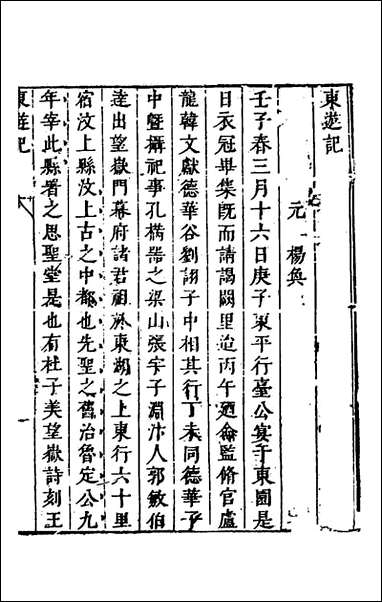 東遊記
元 楊奐
壬子春三月十六日庚子東平行臺公宴于東園是
日衣冠畢集既而請謁闕里迨丙午廼命監脩官盧
龍韓文獻德華谷劉詡子中相其行丁未同德華子
中暨攝祀事孔器之梁山張宇子淵汴人郭敏伯
達出望嶽門幕府諸君祖於東湖之上東行六十里
宿汶上縣汶上古之中都也先聖之舊治魯定公九
年宰此縣署之思聖堂是也有杜子美望嶽詩刻王
東遊記
一